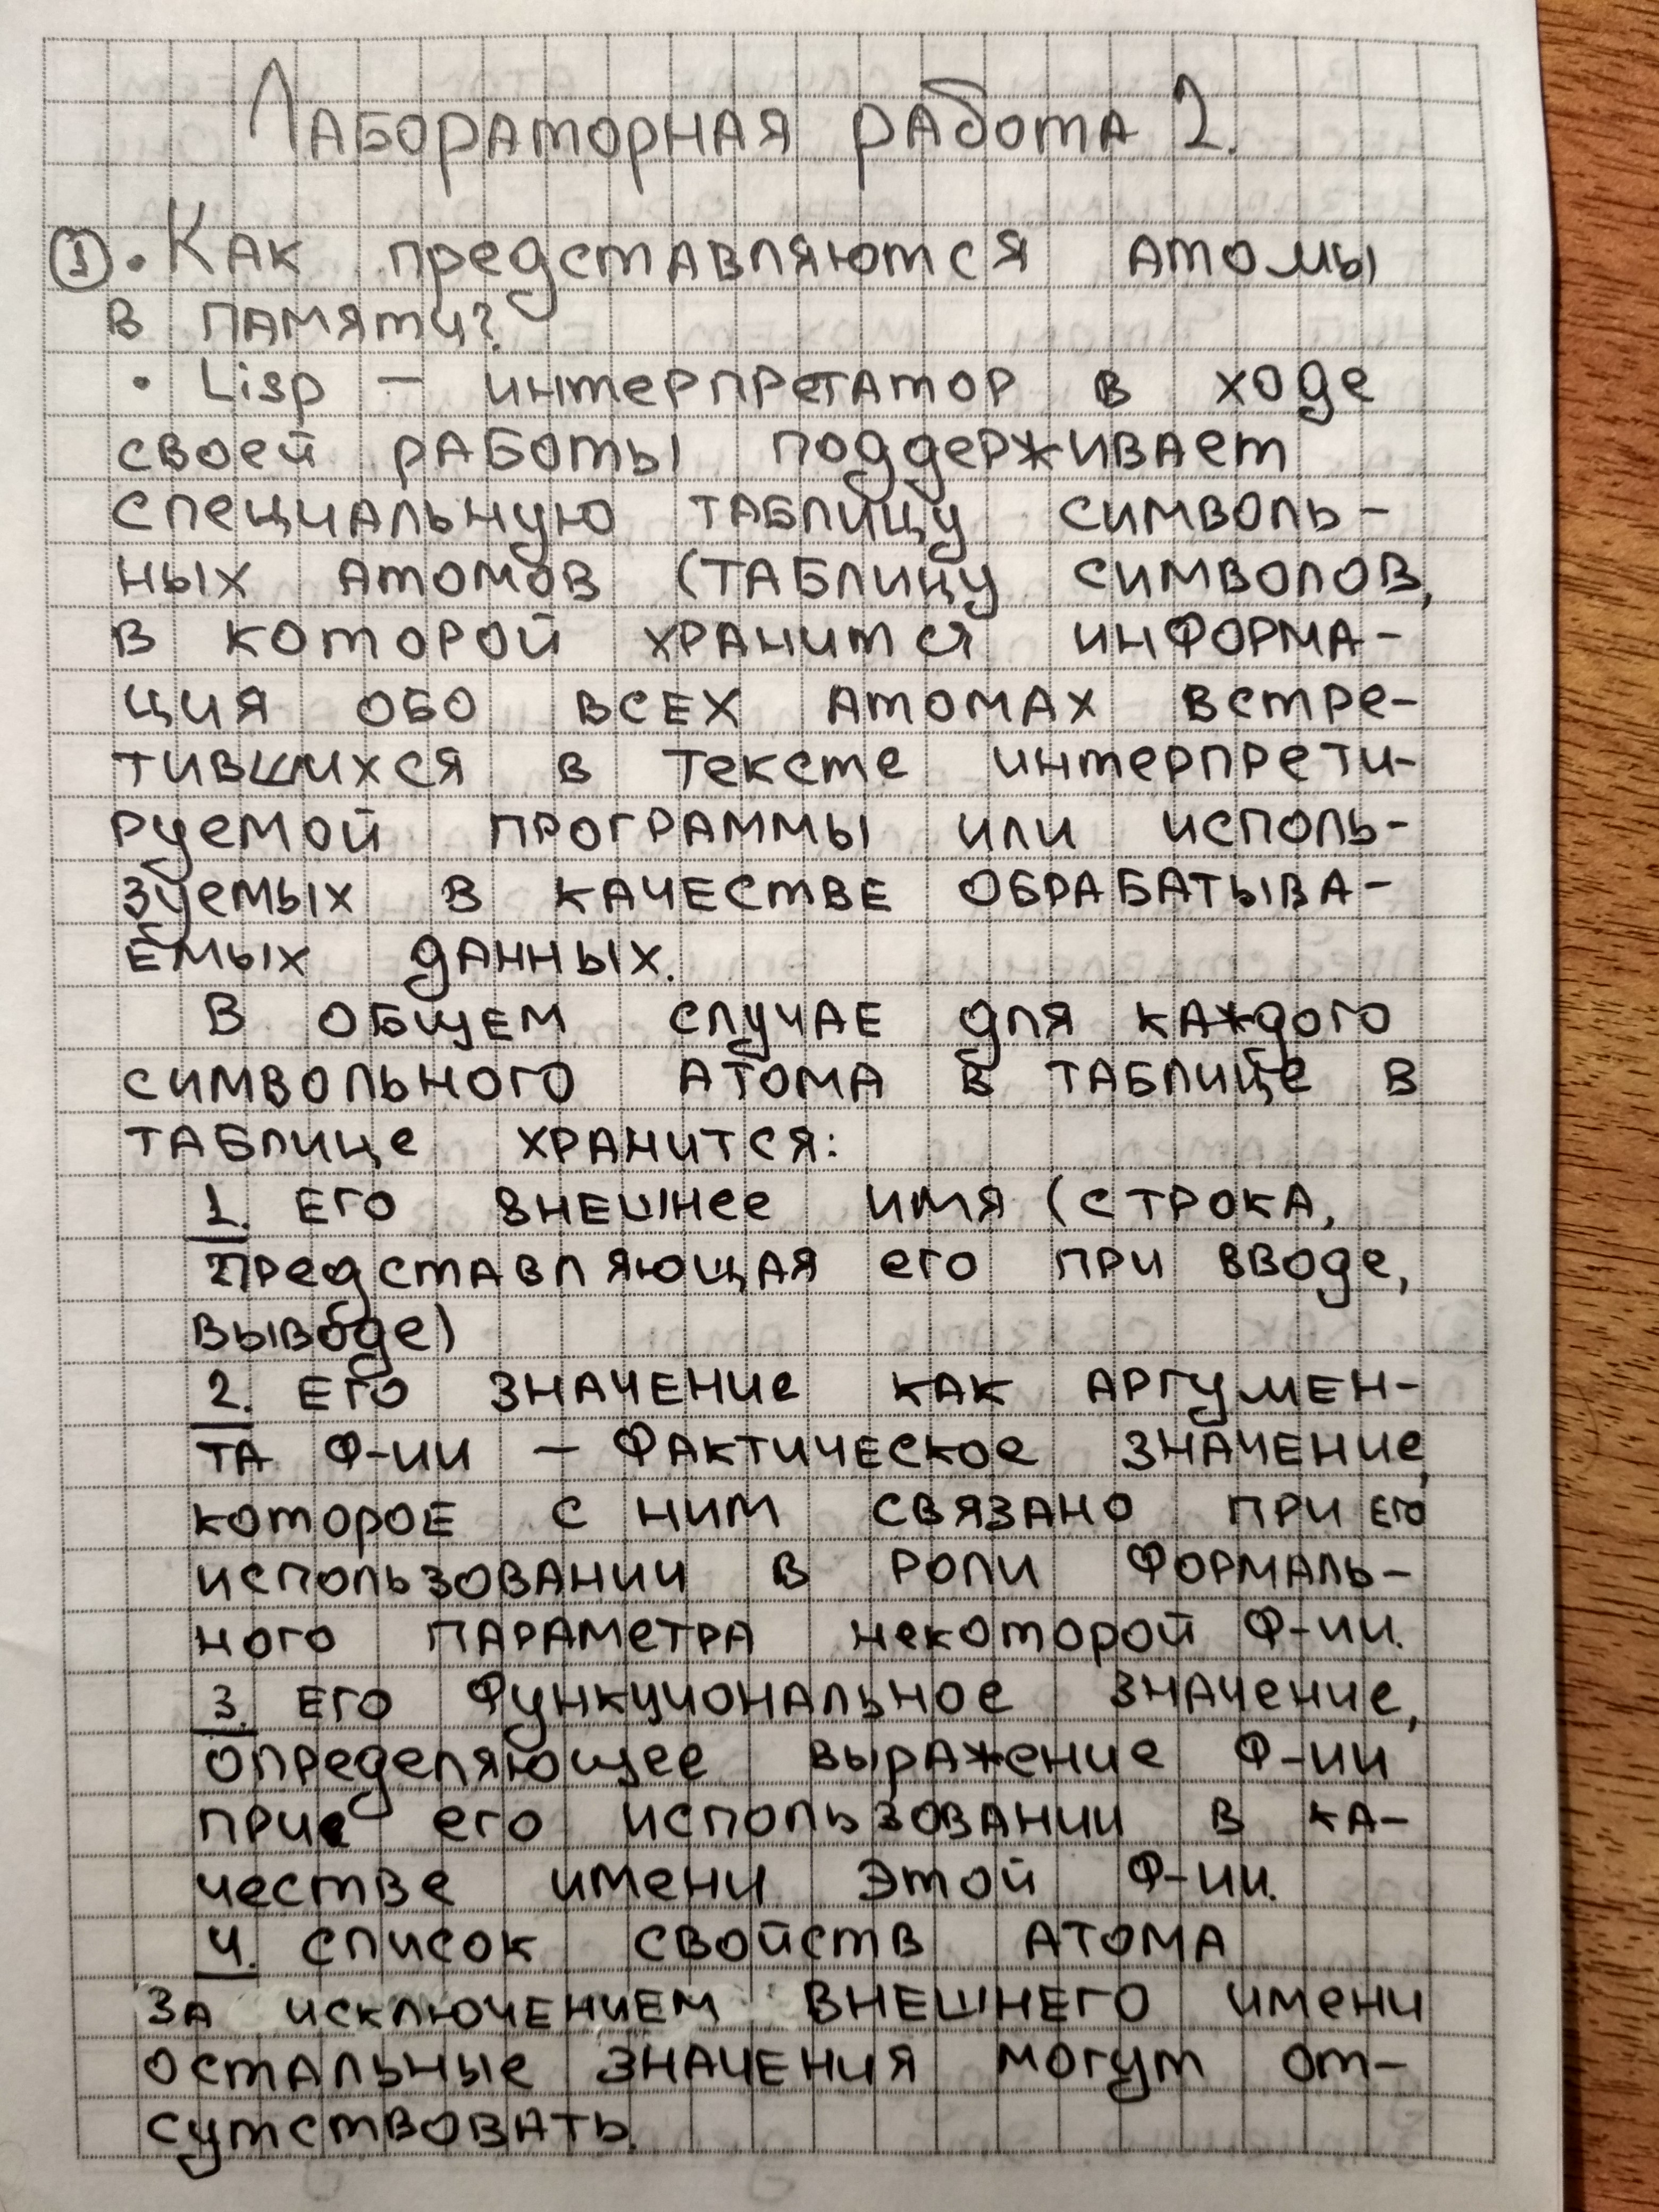 Лабораторная работа 2.
① • Как представляются атомы
в памяти?
• Lisp – интерпретатор в ходе
своей работы поддерживает
специальную таблицу символь-
ных атомов (таблицу символов,
в которой хранится информа-
ция обо всех атомах встре-
тившихся в тексте интерпрети-
руемой программы или исполь-
зуемых в качестве обрабатыва-
емых данных.
В общем случае для каждого
символьного атома в таблице в
таблице хранится:
1. его внешнее имя (строка,
представляющая его при вводе,
выводе)
2. его значение как аргумен-
та ф-ии – фактическое значение,
которое с ним связано при его
использовании в роли формаль-
ного параметра некоторой ф-ии.
3. его функциональное значение,
определяющее выражение ф-ии
при его использовании в ка-
честве имени этой ф-ии.
4. список свойств атома
За исключением внешнего имени
остальные значения могут от-
сутствовать.